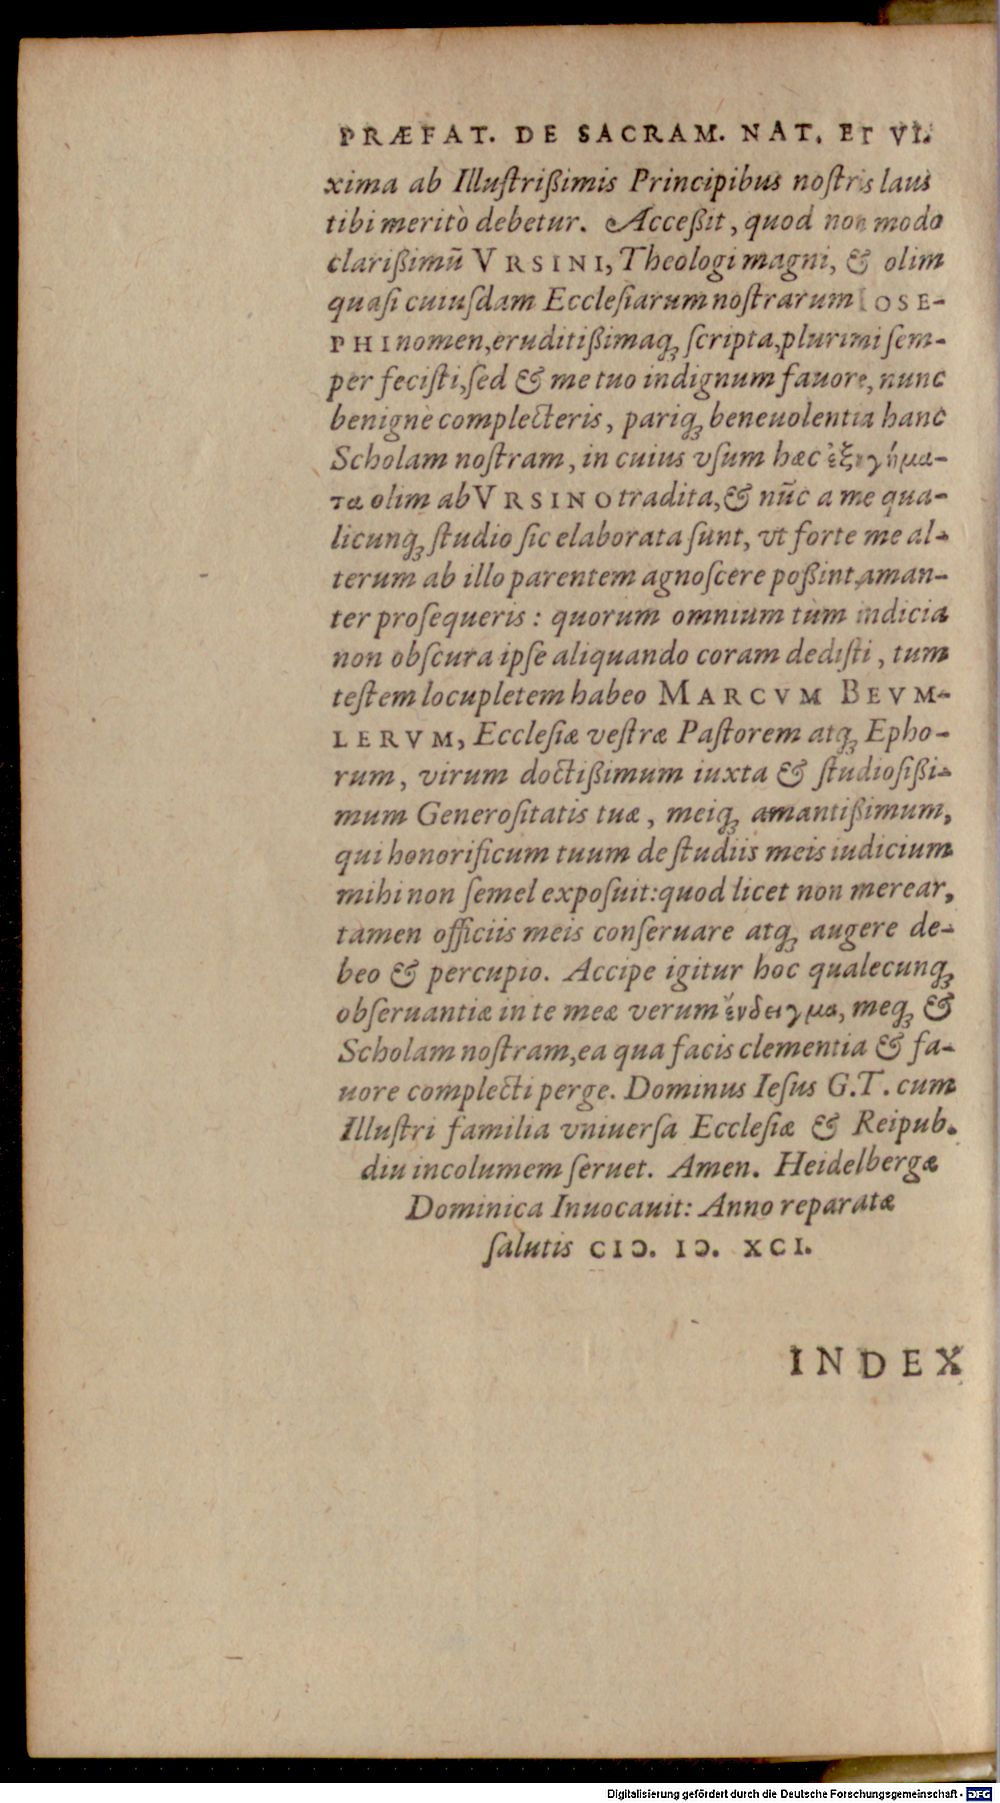 PRÆFAT. DE SACRAM. NAT. ET VI.
xima ab Illuſtrißimis Principibus noſtris laus
tibi meritò debetur. Acceßit, quod non modo
clarißimũ VRSINI, Theologi magni, & olim
quaſi cuiuſdam Eccleſiarum noſtrarum IOSE-
PHI nomen, eruditißimaq́; ſcripta, plurimi ſem-
per feciſti, ſed & me tuo indignum fauore, nunc
benignè complecteris, pariq́; beneuolentia hanc
Scholam noſtram, in cuius vſum hæc ἐξηγήμα-
τα olim ab VRSINO tradita, & nũc a me qua-
licunq; ſtudio ſic elaborata ſunt, vt forte me al-
terum ab illo parentem agnoſcere poßint, aman-
ter proſequeris: quorum omnium tùm indicia
non obſcura ipſe aliquando coram dediſti, tum
teſtem locupletem habeo MARCVM BEVM-
LERVM, Eccleſiæ veſtræ Paſtorem atq; Epho-
rum, virum doctißimum iuxta & ſtudioſißi-
mum Generoſitatis tuæ, meiq; amantißimum,
qui honorificum tuum de ſtudiis meis iudicium
mihi non ſemel expoſuit: quod licet non merear,
tamen officiis meis conſeruare atq; augere de-
beo & percupio. Accipe igitur hoc qualecunq;
obſeruantiæ in te meæ verum ἔνδειγμα, meq; &
Scholam noſtram, ea qua facis clementia & fa-
uore complecti perge. Dominus Ieſus G.T. cum
Illuſtri familia vniuerſa Eccleſiæ & Reipub.
diu incolumem ſeruet. Amen. Heidelbergæ
Dominica Inuocauit: Anno reparatæ
ſalutis CIↃ. IↃ. XCI.
INDEX
Digitalisierung gefördert durch die Deutsche Forschungsgemeinschaft - DFG